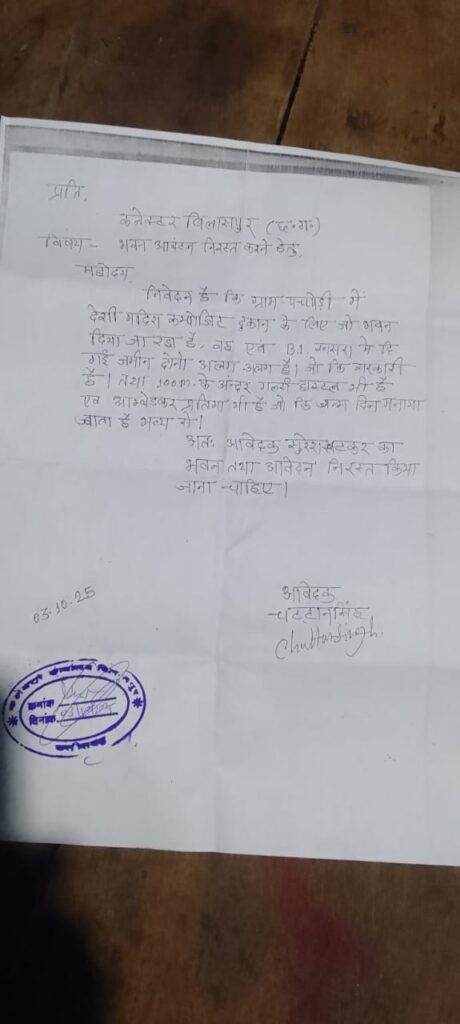 प्रति,
कलेक्टर बिलासपुर (छ॰ग॰)
विषय- भवन आबंटन निरस्त करने हेतु,
महोदय,
निवेदन है कि ग्राम पचपेड़ी में
देशी मदिरा कम्पोजिट दुकान के लिए जो भवन
दिया जा रहा है, वह एवं B1, खसरा में दि
गई जमीन दोनो अलग अलग है। जो कि सरकारी
है। तथा 100m. के अन्दर गर्ल्स हास्टल भी है
एवं आम्बेडकर प्रतिमा भी है जो कि जन्म दिन मनाया
जाता है भव्य से।
अतः आवेदक सुरेश खटकर का
भवन तथा आवेदन निरस्त किया
जाना चाहिए।
03.10.25
आवेदक
चट्टानसिंह
Chattansingh.
क्रमांक
दिनांक